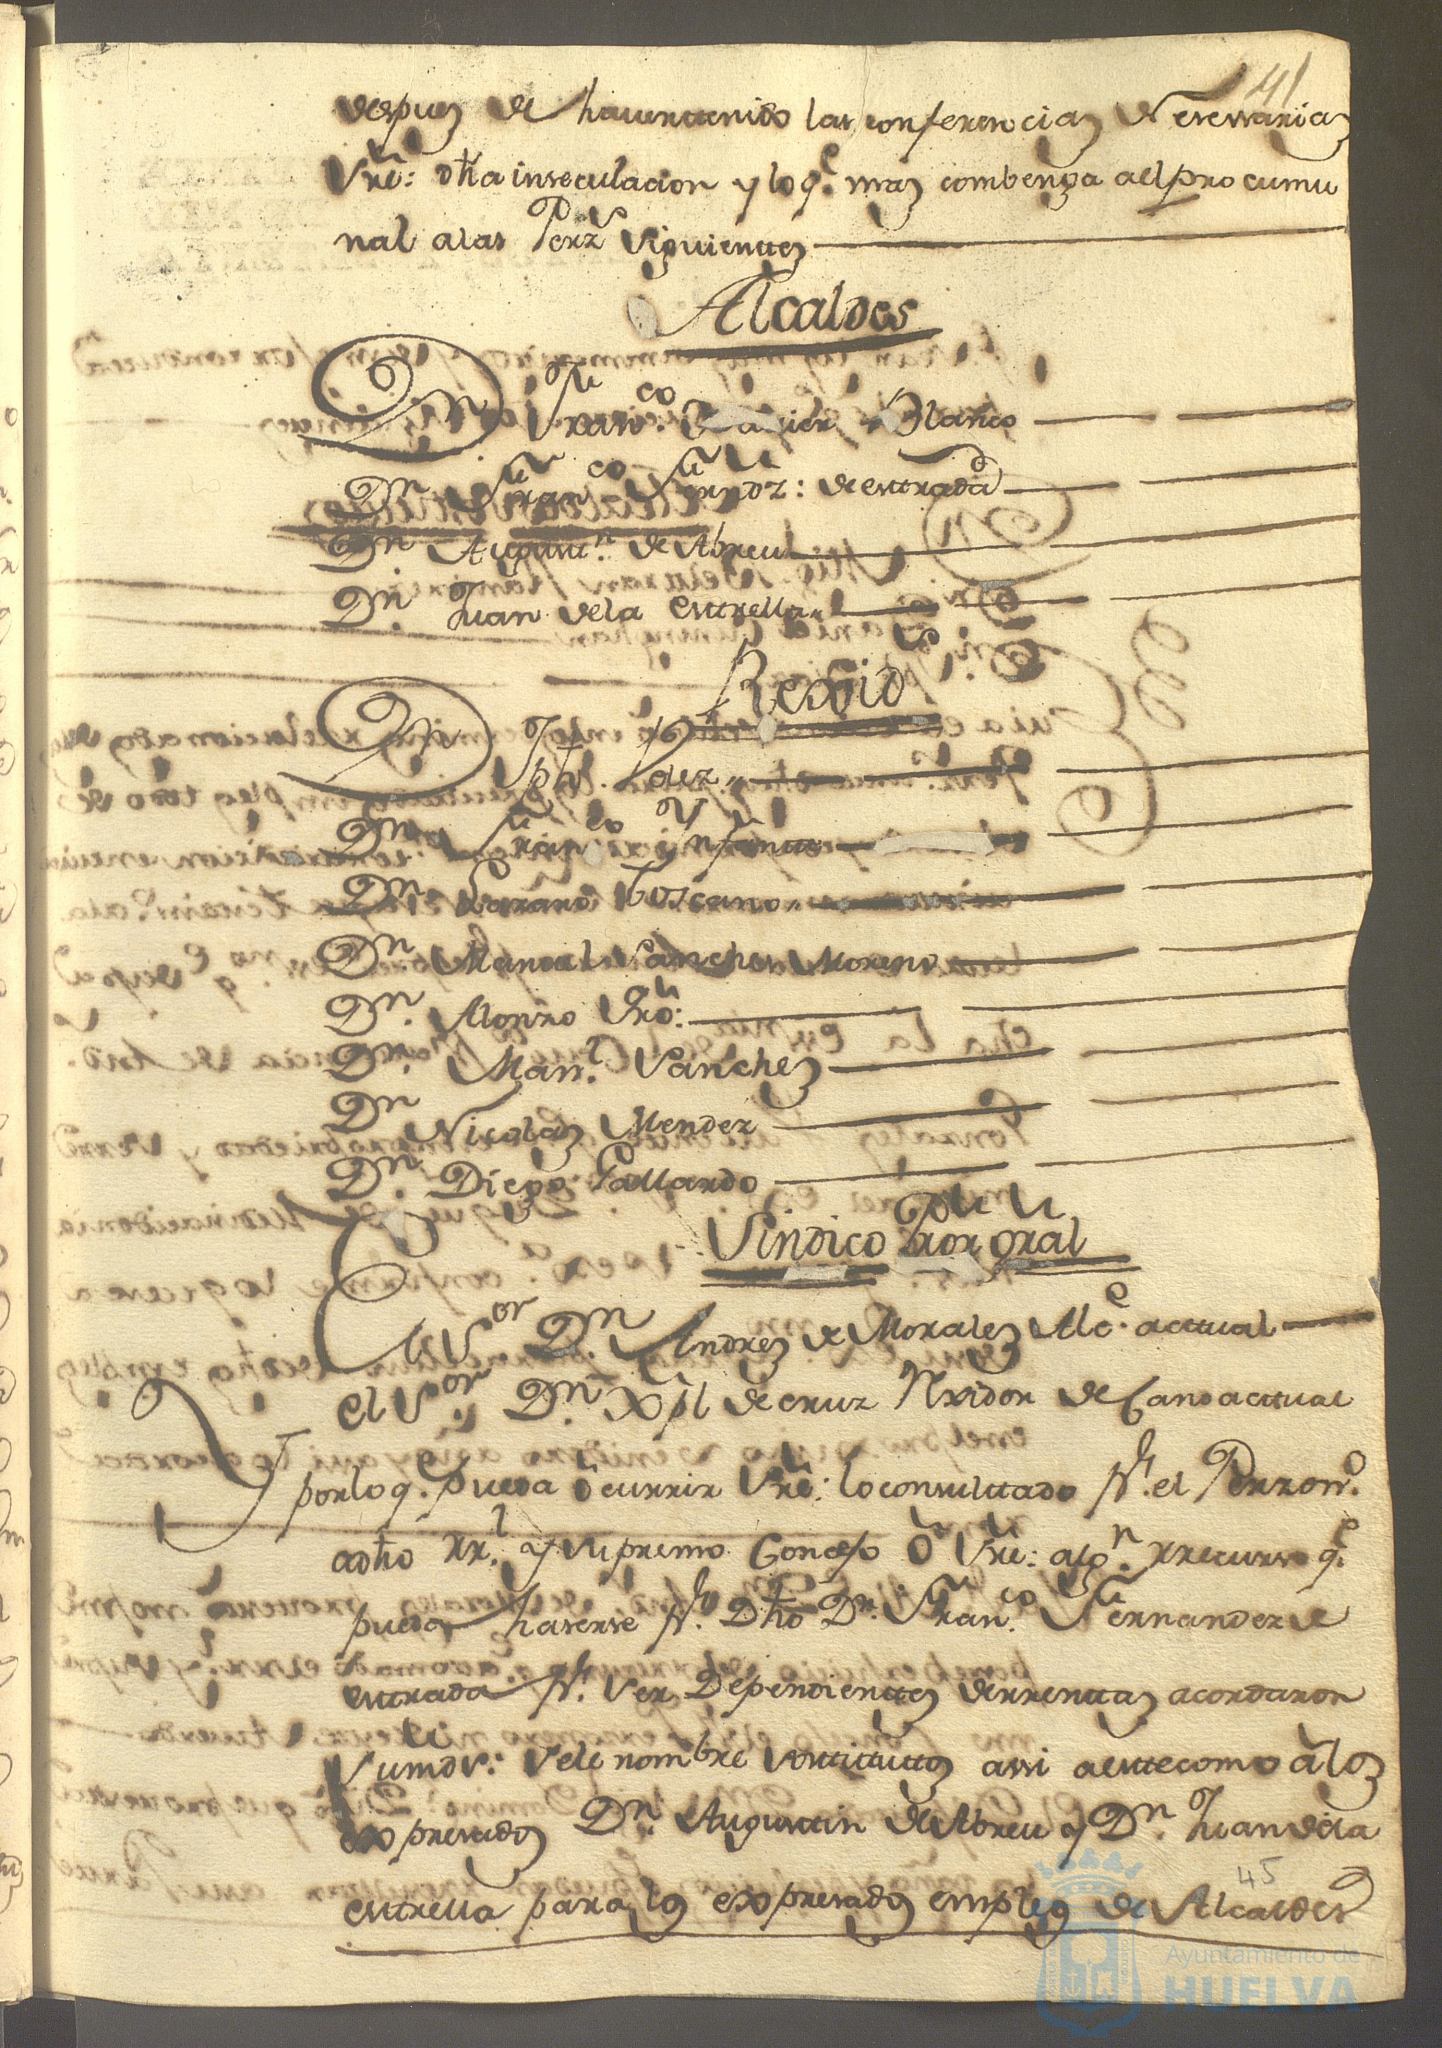 41
despues de haver tenido las conferencias Nesessarias
sre: dha inseculacion y lo q.e mas combenga a el pro cumu
nal a las Perz.s siguientes
Alcaldes
Dn Fran.co Xavier Blanco
Dn Fran.co Ferndz: de estrada
Dn Augustn. de Abreu
Dn. Juan de la estrella
Rexid.s
Dn Jph
Dn Fran.co Ynfante
Dn Lazaro Toscano
Dn Manoal Sanches Moreno
Dn. Alonzo
Dn. Man.l Sanches
Dn Nicolas Mendez
Dn. Diego Gallardo
Sindico Pror gral
el Sor Dn. Andres de Morales Alc.e actual
el Sor Dn Xpl de cruz Rexidor de Cano actual
Y por lo q.e pueda ocurrir sre: lo consultado pr. el Perzon.o
a dho Rl. y supremo Consejo o sre: algn. rrecurso q.e
pueda haserse pr. Dho Dn. Fran.co Fernandez de
estrada pr. ser Dependientes de rrentas acordaron
sus mds: se le nombre sostitutos assi a este como a los
expresados Dn. Augustin de Abreu y Dn. Juan de la
estrella para los expresados empleos de Alcaldes
45
Ayuntamiento de
HUELVA